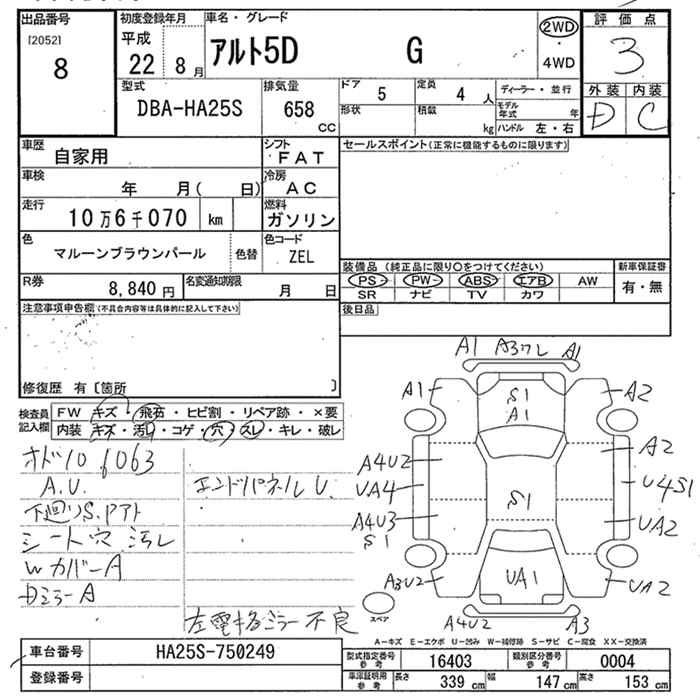 出品番号
[2052]
8
初度登録年月
平成
22 8 月
車名・グレード
アルト5D G
2WD
・
4WD
評価点
3
外装 内装
D C
型式
DBA-HA25S
排気量
658
cc
ドア
5
形状
定員
4 人
積載
kg
ディーラー・並行
モデル年式 年
ハンドル 左・右
車歴
自家用
シフト
FAT
車検
年 月( 日)
冷房
AC
走行
10万6千070 km
燃料
ガソリン
色
マルーンブラウンパール
色替
色コード
ZEL
R券
8,840 円
名変通知期限
月 日
セールスポイント(正常に機能するものに限ります)
装備品(純正品に限り○をつけてください)
PS PW ABS エアB AW
SR ナビ TV カワ
新車保証書
有・無
後日品
注意事項申告欄(不具合内容等は具体的に記入して下さい)
修復歴 有〔箇所 〕
検査員
記入欄
FW キズ・飛石・ヒビ割・リペア跡・×要
内装 キズ・汚れ・コゲ・穴・スレ・キレ・破レ
オドル0 6063
A.U.
下廻りS.Pアト
シート穴 汚レ
Wカバー A
Dミラー A
エンドパネル U.
左電格ミラー不良
A1 A3ワレ A1
A1 S1 A2
A1
A4U2 A2
UA4 S1 U4S1
A4U3 UA2
S1
A3U2 UA1 UA2
スペア
A4U2 A3
A-キズ E-エクボ U-凹み W-補修跡 S-サビ C-腐食 XX-交換済
車台番号
HA25S-750249
登録番号
型式指定番号
参考
16403
類別区分番号
参考
0004
車庫証明用
参考
長さ 339 cm 幅 147 cm 高さ 153 cm